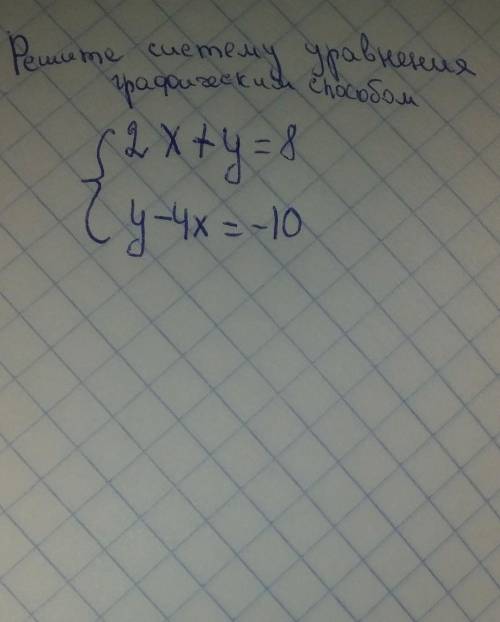 Решите систему уравнения
графическим способом
2x+y=8
y-4x=-10